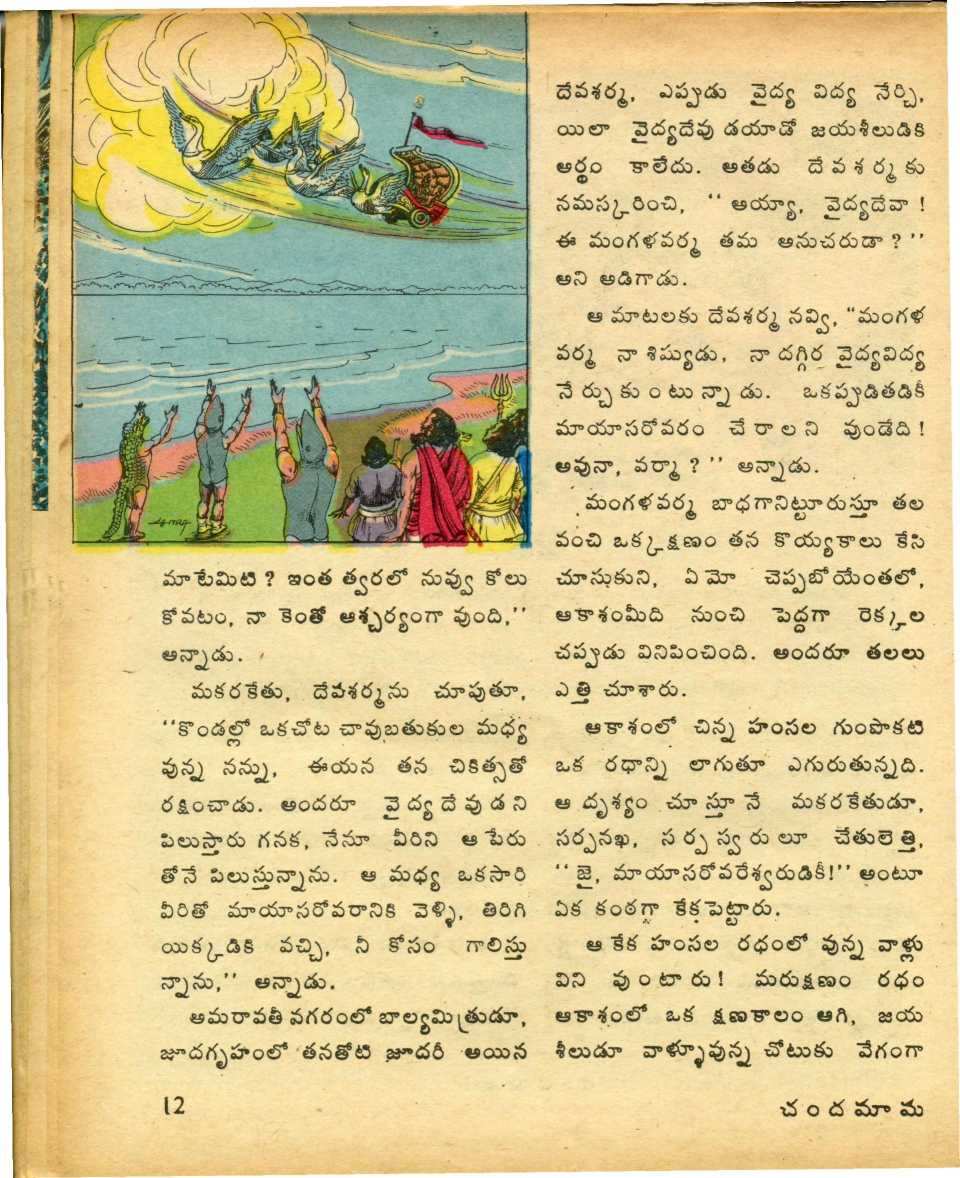 మాటేమిటి ? ఇంత త్వరలో నువ్వు కోలు
కోవటం, నా కెంతో ఆశ్చర్యంగా వుంది,''
అన్నాడు.
మకరకేతు, దేవశర్మను చూపుతూ,
''కొండల్లో ఒకచోట చావుబతుకుల మధ్య
వున్న నన్ను, ఈయన తన చికిత్సతో
రక్షించాడు. అందరూ వైద్యదేవుడని
పిలుస్తారు గనక, నేనూ వీరిని ఆ పేరు
తోనే పిలుస్తున్నాను. ఆ మధ్య ఒకసారి
వీరితో మాయాసరోవరానికి వెళ్ళి, తిరిగి
యిక్కడికి వచ్చి, నీ కోసం గాలిస్తు
న్నాను,'' అన్నాడు.
అమరావతీ నగరంలో బాల్యమిత్రుడూ,
జూదగృహంలో తనతోటి జూదరీ అయిన
దేవశర్మ, ఎప్పుడు వైద్య విద్య నేర్చి,
యిలా వైద్యదేవు డయాడో జయశీలుడికి
అర్థం కాలేదు. అతడు దేవశర్మకు
నమస్కరించి, '' అయ్యా, వైద్యదేవా !
ఈ మంగళవర్మ తమ అనుచరుడా ? ''
అని అడిగాడు.
ఆ మాటలకు దేవశర్మ నవ్వి, "మంగళ
వర్మ నా శిష్యుడు, నా దగ్గిర వైద్యవిద్య
నేర్చుకుంటున్నాడు. ఒకప్పుడితడికీ
మాయాసరోవరం చేరాలని వుండేది !
అవునా, వర్మా ? '' అన్నాడు.
మంగళవర్మ బాధగానిట్టూరుస్తూ తల
వంచి ఒక్కక్షణం తన కొయ్యకాలు కేసి
చూసుకుని, ఏమో చెప్పబోయేంతలో,
ఆకాశంమీది నుంచి పెద్దగా రెక్కల
చప్పుడు వినిపించింది. అందరూ తలలు
ఎత్తి చూశారు.
ఆకాశంలో చిన్న హంసల గుంపొకటి
ఒక రథాన్ని లాగుతూ ఎగురుతున్నది.
ఆ దృశ్యం చూస్తూనే మకరకేతుడూ,
సర్పనఖ, సర్పస్వరులూ చేతులెత్తి,
'' జై, మాయాసరోవరేశ్వరుడికీ!'' అంటూ
ఏక కంఠగ్గా కేకపెట్టారు.
ఆ కేక హంసల రథంలో వున్న వాళ్లు
విని వుంటారు! మరుక్షణం రథం
ఆకాశంలో ఒక క్షణకాలం ఆగి, జయ
శీలుడూ వాళ్ళూవున్న చోటుకు వేగంగా
12
చందమామ